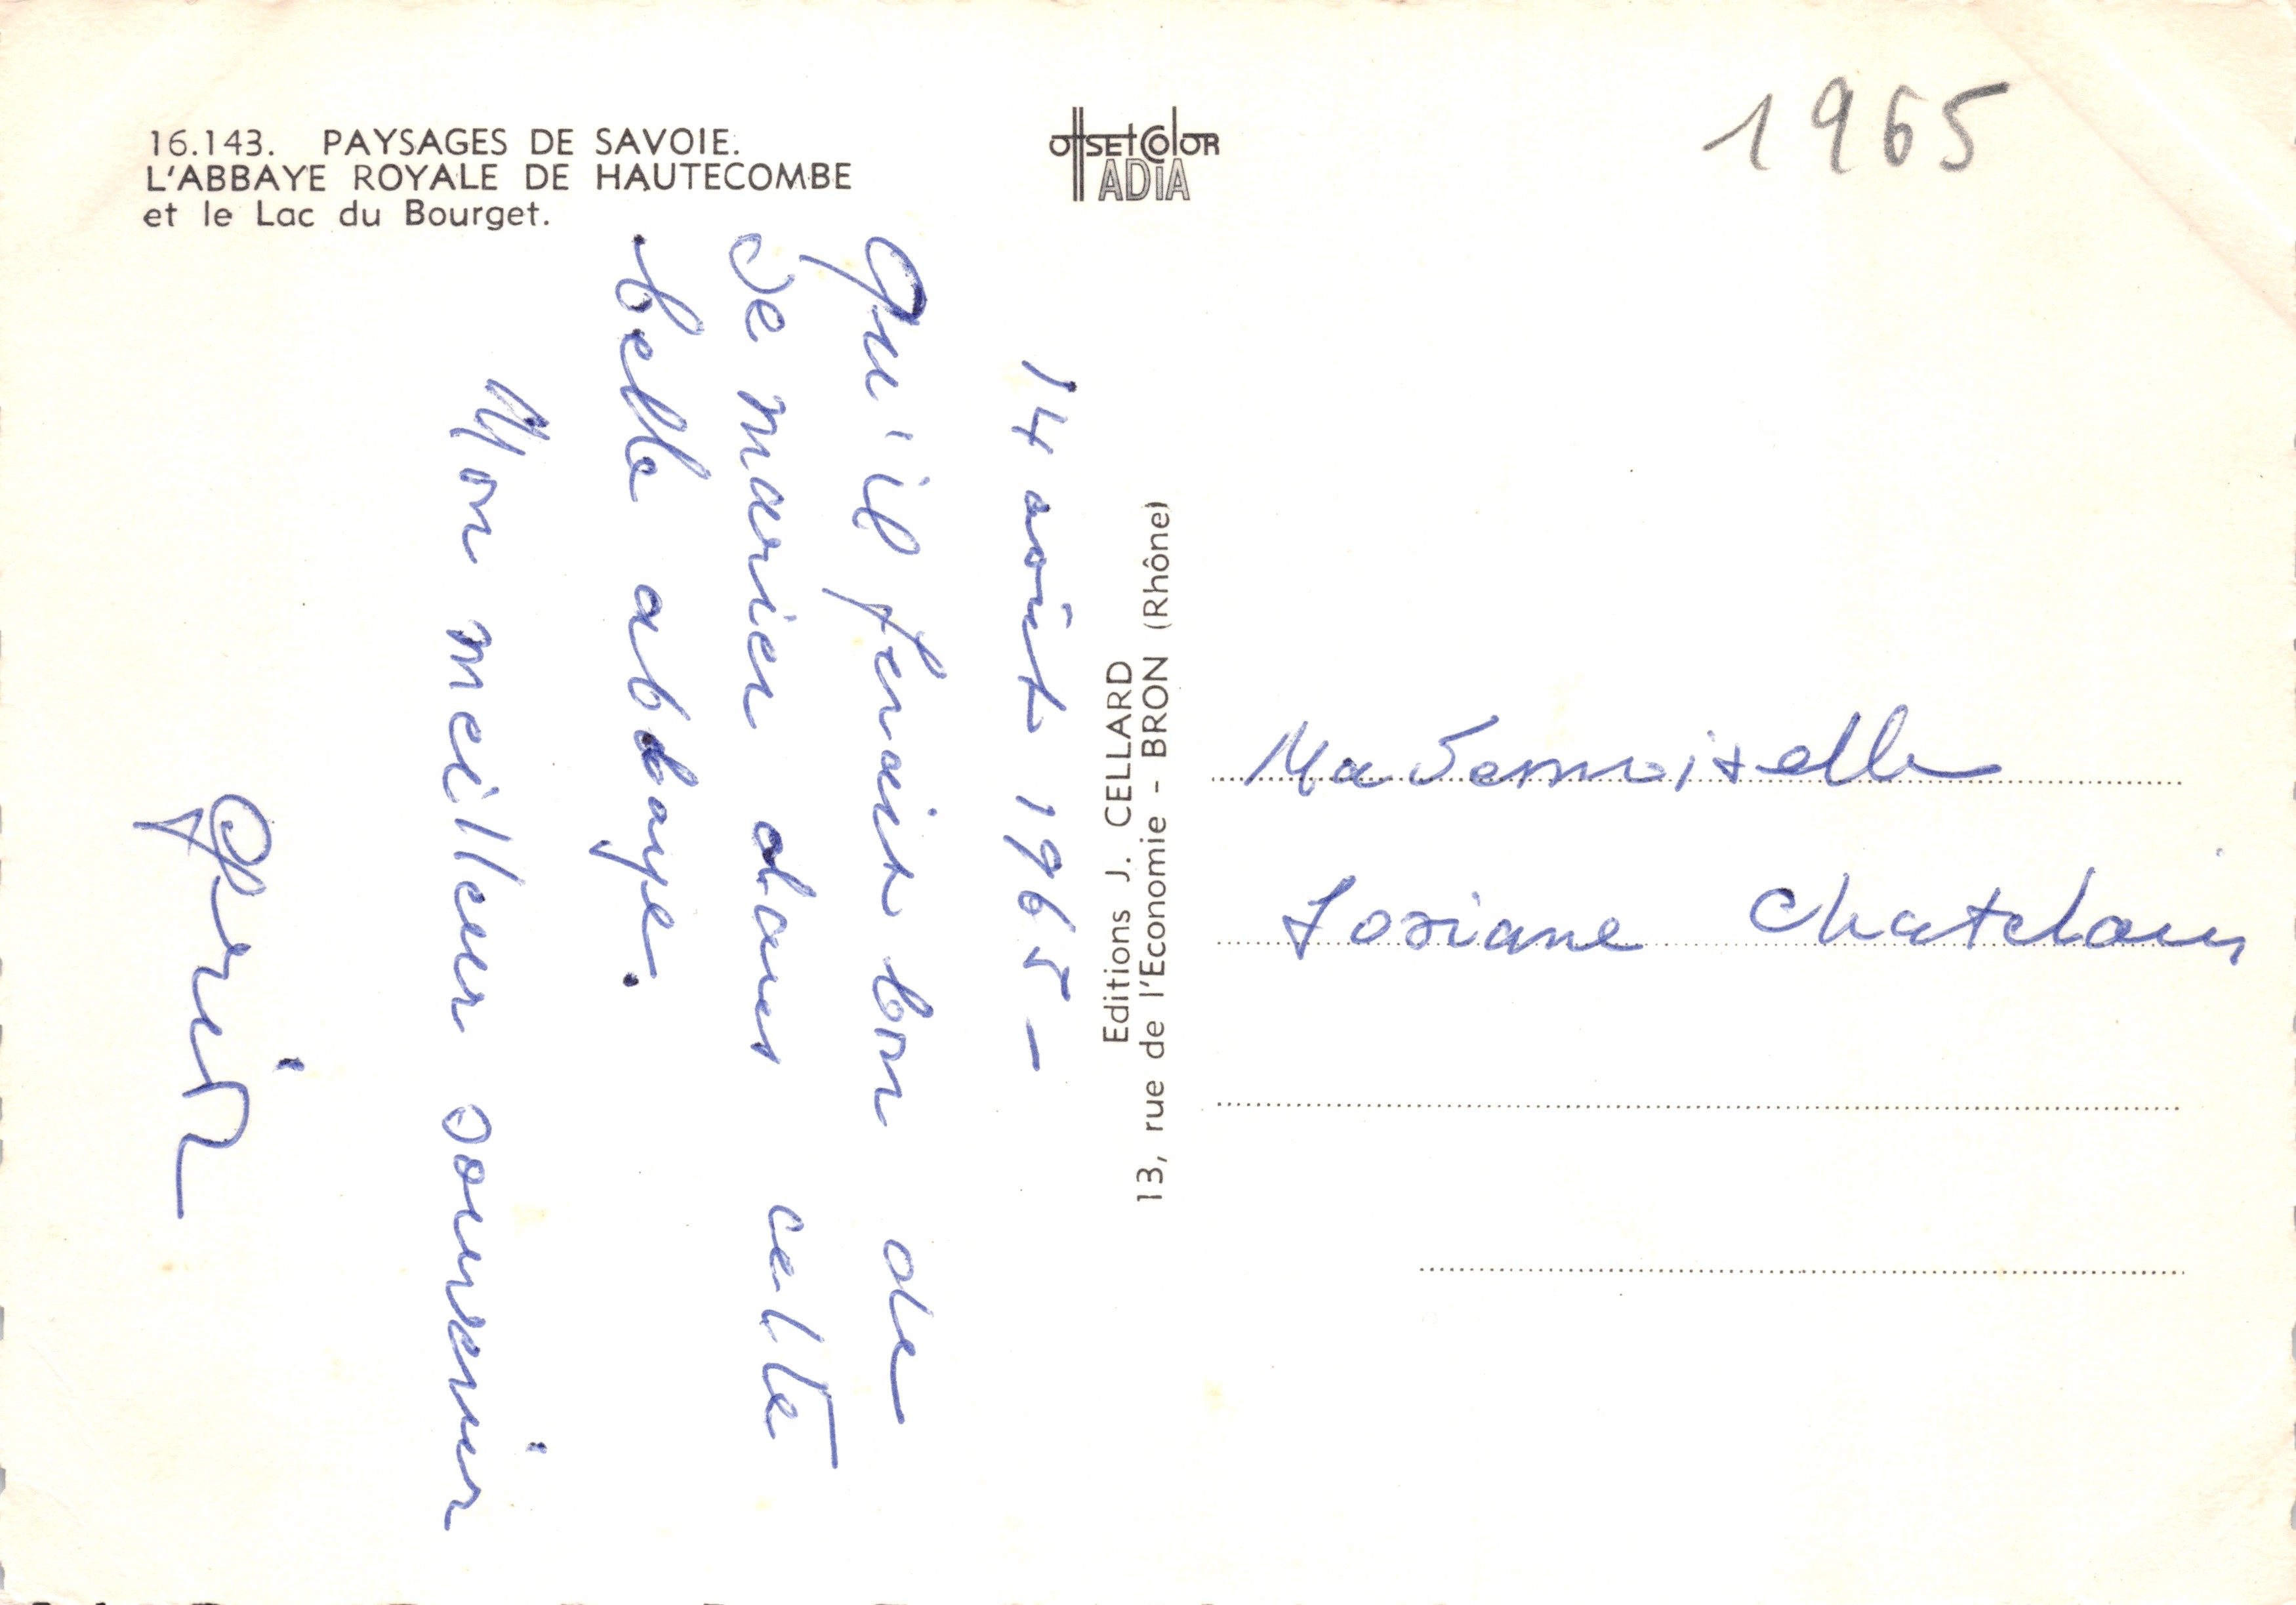 16.143. PAYSAGES DE SAVOIE.
L'ABBAYE ROYALE DE HAUTECOMBE
et le Lac du Bourget.
OffsetColor
ADIA
1965
14 août 1965 -
Qu'il ferait bon de
se marier dans cette
belle abbaye.
Mon meilleur souvenir
Editions J. CELLARD
13, rue de l'Economie - BRON (Rhône)
Mademoiselle
Loriane Chatelain